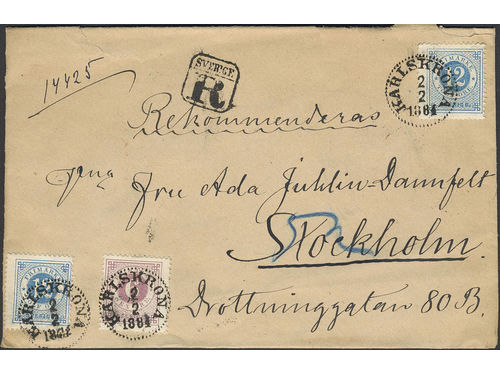 14425
SVERGE
R
KARLSKRONA
2
2
1884
Rekommenderas
Fru Ada Juhlin-Dannfelt
Stockholm.
Drottninggatan 80 B.
KARLSKRONA
2
2
1884
KARLSKRONA
2
2
1884